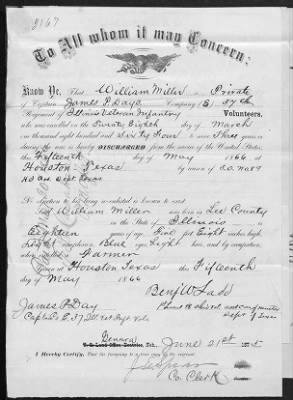 3167
To All whom it may Concern:
Know Ye, That William Miller a Private
of Captain James P. Days Company (E) 37th
Regiment of Illinois Veteran Infantry Volunteers,
who was enrolled on the Twenty Eighth day of March
one thousand eight hundred and Sixty Four to serve Three years or
during the war, is hereby DISCHARGED from the service of the United States,
this Fifteenth day of May 1866, at
Houston Texas by reason of
No objection to his being re-enlisted is known to exist.
Said William Miller was born in Lee County
in the State of Illinois is
Eighteen years of age, Five feet Eight inches high,
Light complexion, Blue eyes, Light hair, and by occupation,
when enrolled, a Farmer
Given at Houston Texas this Fifteenth
day of May 1866
Benj W Ladd
James P Day
Captain E. 37 Ill. Vet. Regt. Vols
Dept of Texas
U. S. Land Office, Beatrice, Neb., June 21st
I Hereby Certify, That the foregoing is a true copy of the original
Co. Clerk